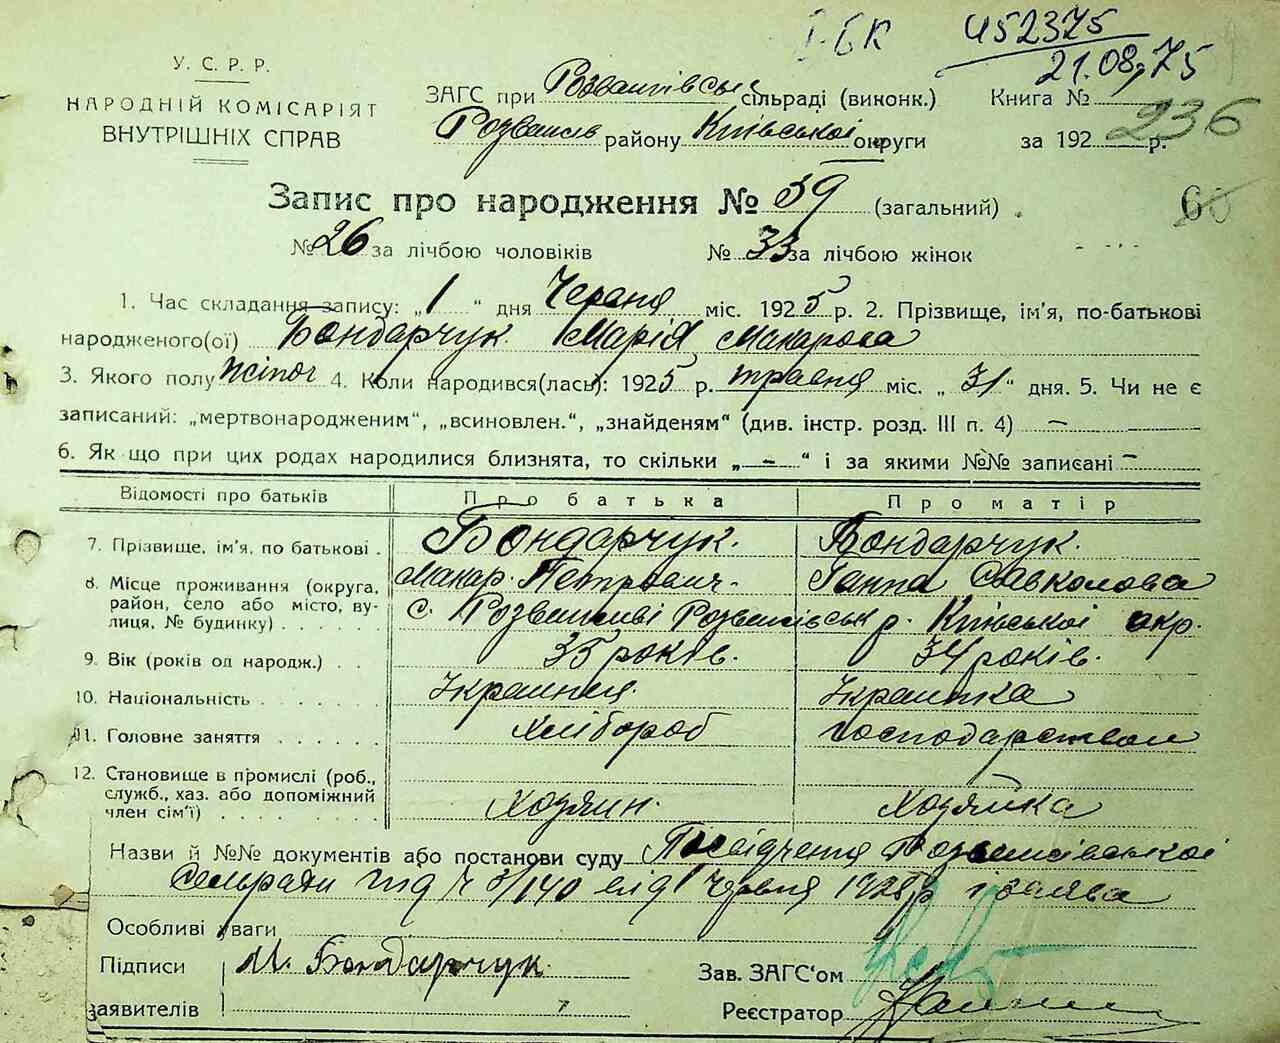 І-БК 452375
21.08.75
У. С. Р. Р.
НАРОДНІЙ КОМІСАРІЯТ
ВНУТРІШНІХ СПРАВ
ЗАГС при Розважівськ сільраді (виконк.) Книга №
Розважів району Київської округи за 192 р.
236
Запис про народження № 59 (загальний)
60
№ 26 за лічбою чоловіків № 33 за лічбою жінок
1. Час складання запису: „1“ дня Червня міс. 1925 р. 2. Прізвище, ім'я, по-батькові
народженого(ої) Бондарчук Марія Макарова
3. Якого полу жіноч 4. Коли народився(лась): 1925 р. травня міс. „31“ дня. 5. Чи не є
записаний: „мертвонародженим“, „всиновлен.“, „знайденям“ (див. інстр. розд. III п. 4) —
6. Як що при цих родах народилися близнята, то скільки „—“ і за якими №№ записані —
Відомості про батьків Про батька Про матір
7. Прізвище, ім'я, по батькові . Бондарчук. Бондарчук.
Макар Петрович. Ганна Савколова
8. Місце проживання (округа, район, село або місто, вулиця, № будинку) . . . . . с. Розважеві Розважівськ р. Київської окр.
9. Вік (років од народж.) . . 35 років. 34 років.
10. Національність . . . . . . Українец. Українка
11. Головне заняття . . . . . . Хлібороб господарством
12. Становище в промислі (роб., служб., хаз. або допоміжний член сім'ї) . . . . . . Хозяин. Хозяйка
Назви й №№ документів або постанови суду Посвідчення Розважівської
Сельради під ч 3/140 від 1 Червня 1925 р і заява
Особливі уваги
Підписи М. Бондарчук. Зав. ЗАГС'ом
заявителів Реєстратор